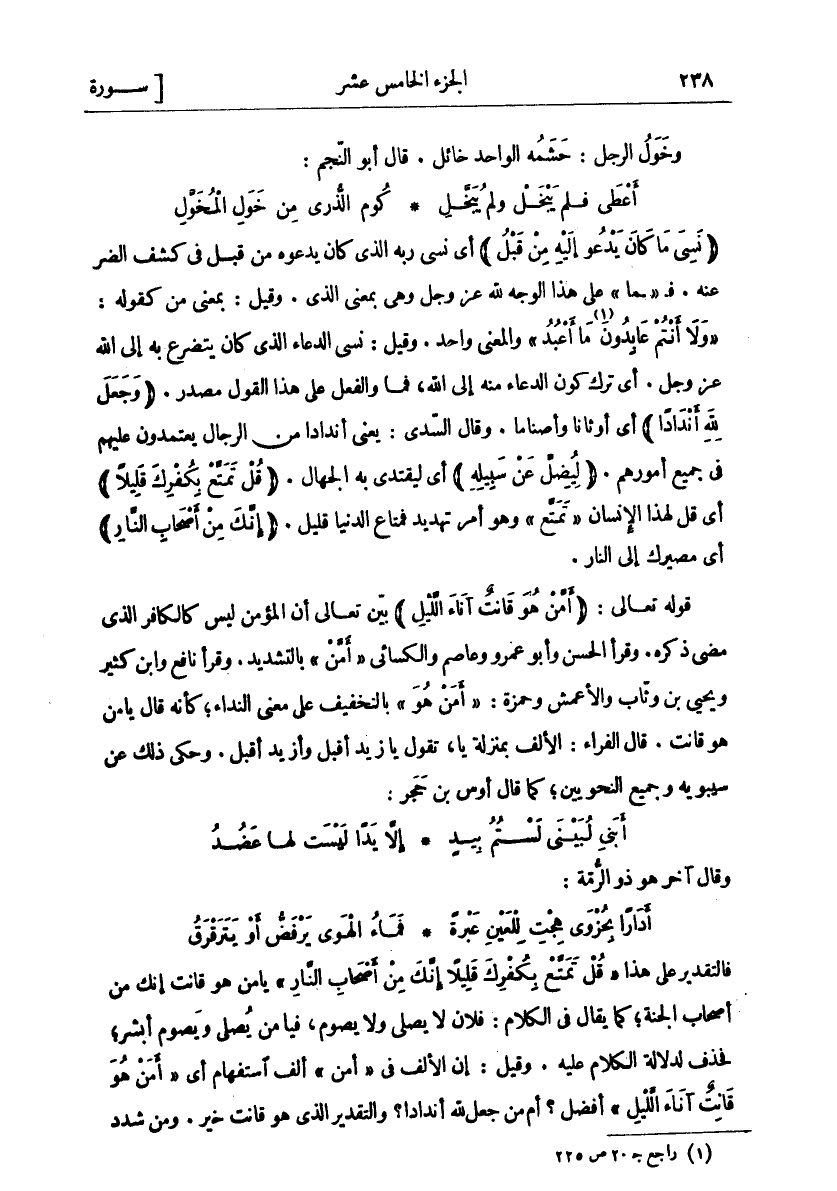 ٢٣٨ الجزء الخامس عشر [ ســورة
وخَوَلُ الرجل : حَشَمُه الواحد خائل . قال أبو النّجم :
أَعْطَى فـلم يَبْخَلْ ولم يُبَخَّلِ * كُوم الذُّرى مِن خَوَلِ الْمُخَوَّلِ
﴿ نَسِيَ مَا كَانَ يَدْعُو إِلَيْهِ مِنْ قَبْلُ ﴾ أى نسى ربه الذى كان يدعوه من قبـل فى كشف الضر
عنه . فـ « ـما » على هذا الوجه لله عز وجل وهى بمعنى الذى . وقيل : بمعنى من كقوله :
« وَلَا أَنْتُمْ عَابِدُونَ مَا أَعْبُدُ (١) » والمعنى واحد . وقيل : نسى الدعاء الذى كان يتضرع به إلى الله
عز وجل . أى ترك كون الدعاء منه إلى الله، فمـا والفعل على هذا القول مصدر . ﴿ وَجَعَلَ
لِلَّهِ أَنْدَادًا ﴾ أى أوثانا وأصناما . وقال السّدى : يعنى أندادا من الرجال يعتمدون عليهم
فى جميع أمورهم . ﴿ لِيُضِلَّ عَنْ سَبِيلِهِ ﴾ أى ليقتدى به الجهال . ﴿ قُلْ تَمَتَّعْ بِكُفْرِكَ قَلِيلًا ﴾
أى قل لهذا الإنسان « تَمَتَّع » وهو أمر تهديد فمتاع الدنيا قليل . ﴿ إِنَّكَ مِنْ أَصْحَابِ النَّارِ ﴾
أى مصيرك إلى النار .
قوله تعـالى : ﴿ أَمَّنْ هُوَ قَانِتٌ آنَاءَ اللَّيْلِ ﴾ بيّن تعـالى أن المؤمن ليس كالكافر الذى
مضى ذكره. وقرأ الحسن وأبو عمرو وعاصم والكسائى « أَمَّنْ » بالتشديد. وقرأ نافع وابن كثير
ويحيى بن وثّاب والأعمش وحمزة : « أَمَنْ هُوَ » بالتخفيف على معنى النداء؛ كأنه قال يامن
هو قانت . قال الفراء : الألف بمنزلة يا، تقول يا زيد أقبل وأزيد أقبل . وحكى ذلك عن
سيبويه وجميع النحويين؛ كما قال أوس بن حَجَر :
أَبَنِي لُبَيْنَى لَسْـتُمُ بِيـدٍ * إِلَّا يَدًا لَيْسَت لهـا عَضُـدُ
وقال آخر هو ذو الرُّمّة :
أَدَارًا بِحُزْوَى هِجْتِ لِلْعَيْنِ عَبْرَةً * فَمَـاءُ الْهَوَى يَرْفَضُّ أَوْ يَتَرَقْرَقُ
فالتقدير على هذا « قُلْ تَمَتَّعْ بِكُفْرِكَ قَلِيلًا إِنَّكَ مِنْ أَصْحَابِ النَّارِ » يامن هو قانت إنك من
أصحاب الجنة؛ كما يقال فى الكلام : فلان لا يصلى ولا يصوم، فيا من يُصلى ويَصوم أبشر؛
فحذف لدلالة الكلام عليه . وقيل : إن الألف فى « أمن » ألف استفهام أى « أَمَنْ هُوَ
قَانِتٌ آنَاءَ اللَّيْلِ » أفضل ؟ أم من جعل لله أندادا؟ والتقدير الذى هو قانت خير . ومن شدد
(١) راجع جـ ٢٠ ص ٢٢٥